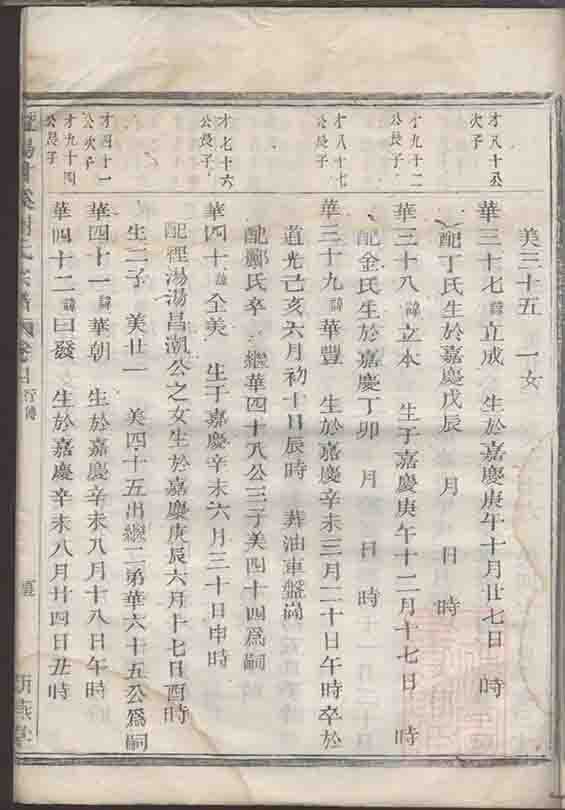 美三十五　一女
才八十公
次子
華三十七諱立成　生於嘉慶庚午十月廿七日　時
配丁氏生於嘉慶戊辰　月　日　時
才九十二
公長子
華三十八諱立本　生于嘉慶庚午十二月十七日　時
配金氏生於嘉慶丁卯　月　日　時
才八十七
公長子
華三十九諱華豐　生於嘉慶辛未三月二十日午時卒於
道光己亥六月初十日辰時　葬油車盤崗
配鄭氏卒　繼華四十八公三子美四十四爲嗣
才七十六
公長子
華四十諱全美　生于嘉慶辛未六月三十日申時
配裡湯湯昌潮公之女生於嘉慶庚辰六月十七日酉時
生二子　美廿一　美四十五出繼二弟華六十五公爲嗣
才四十一
公次子
華四十一諱華朝　生於嘉慶辛未八月十八日午時
才九十四
公長子
華四十二諱曰發　生於嘉慶辛未八月廿四日丑時
氏宗譜
行傳